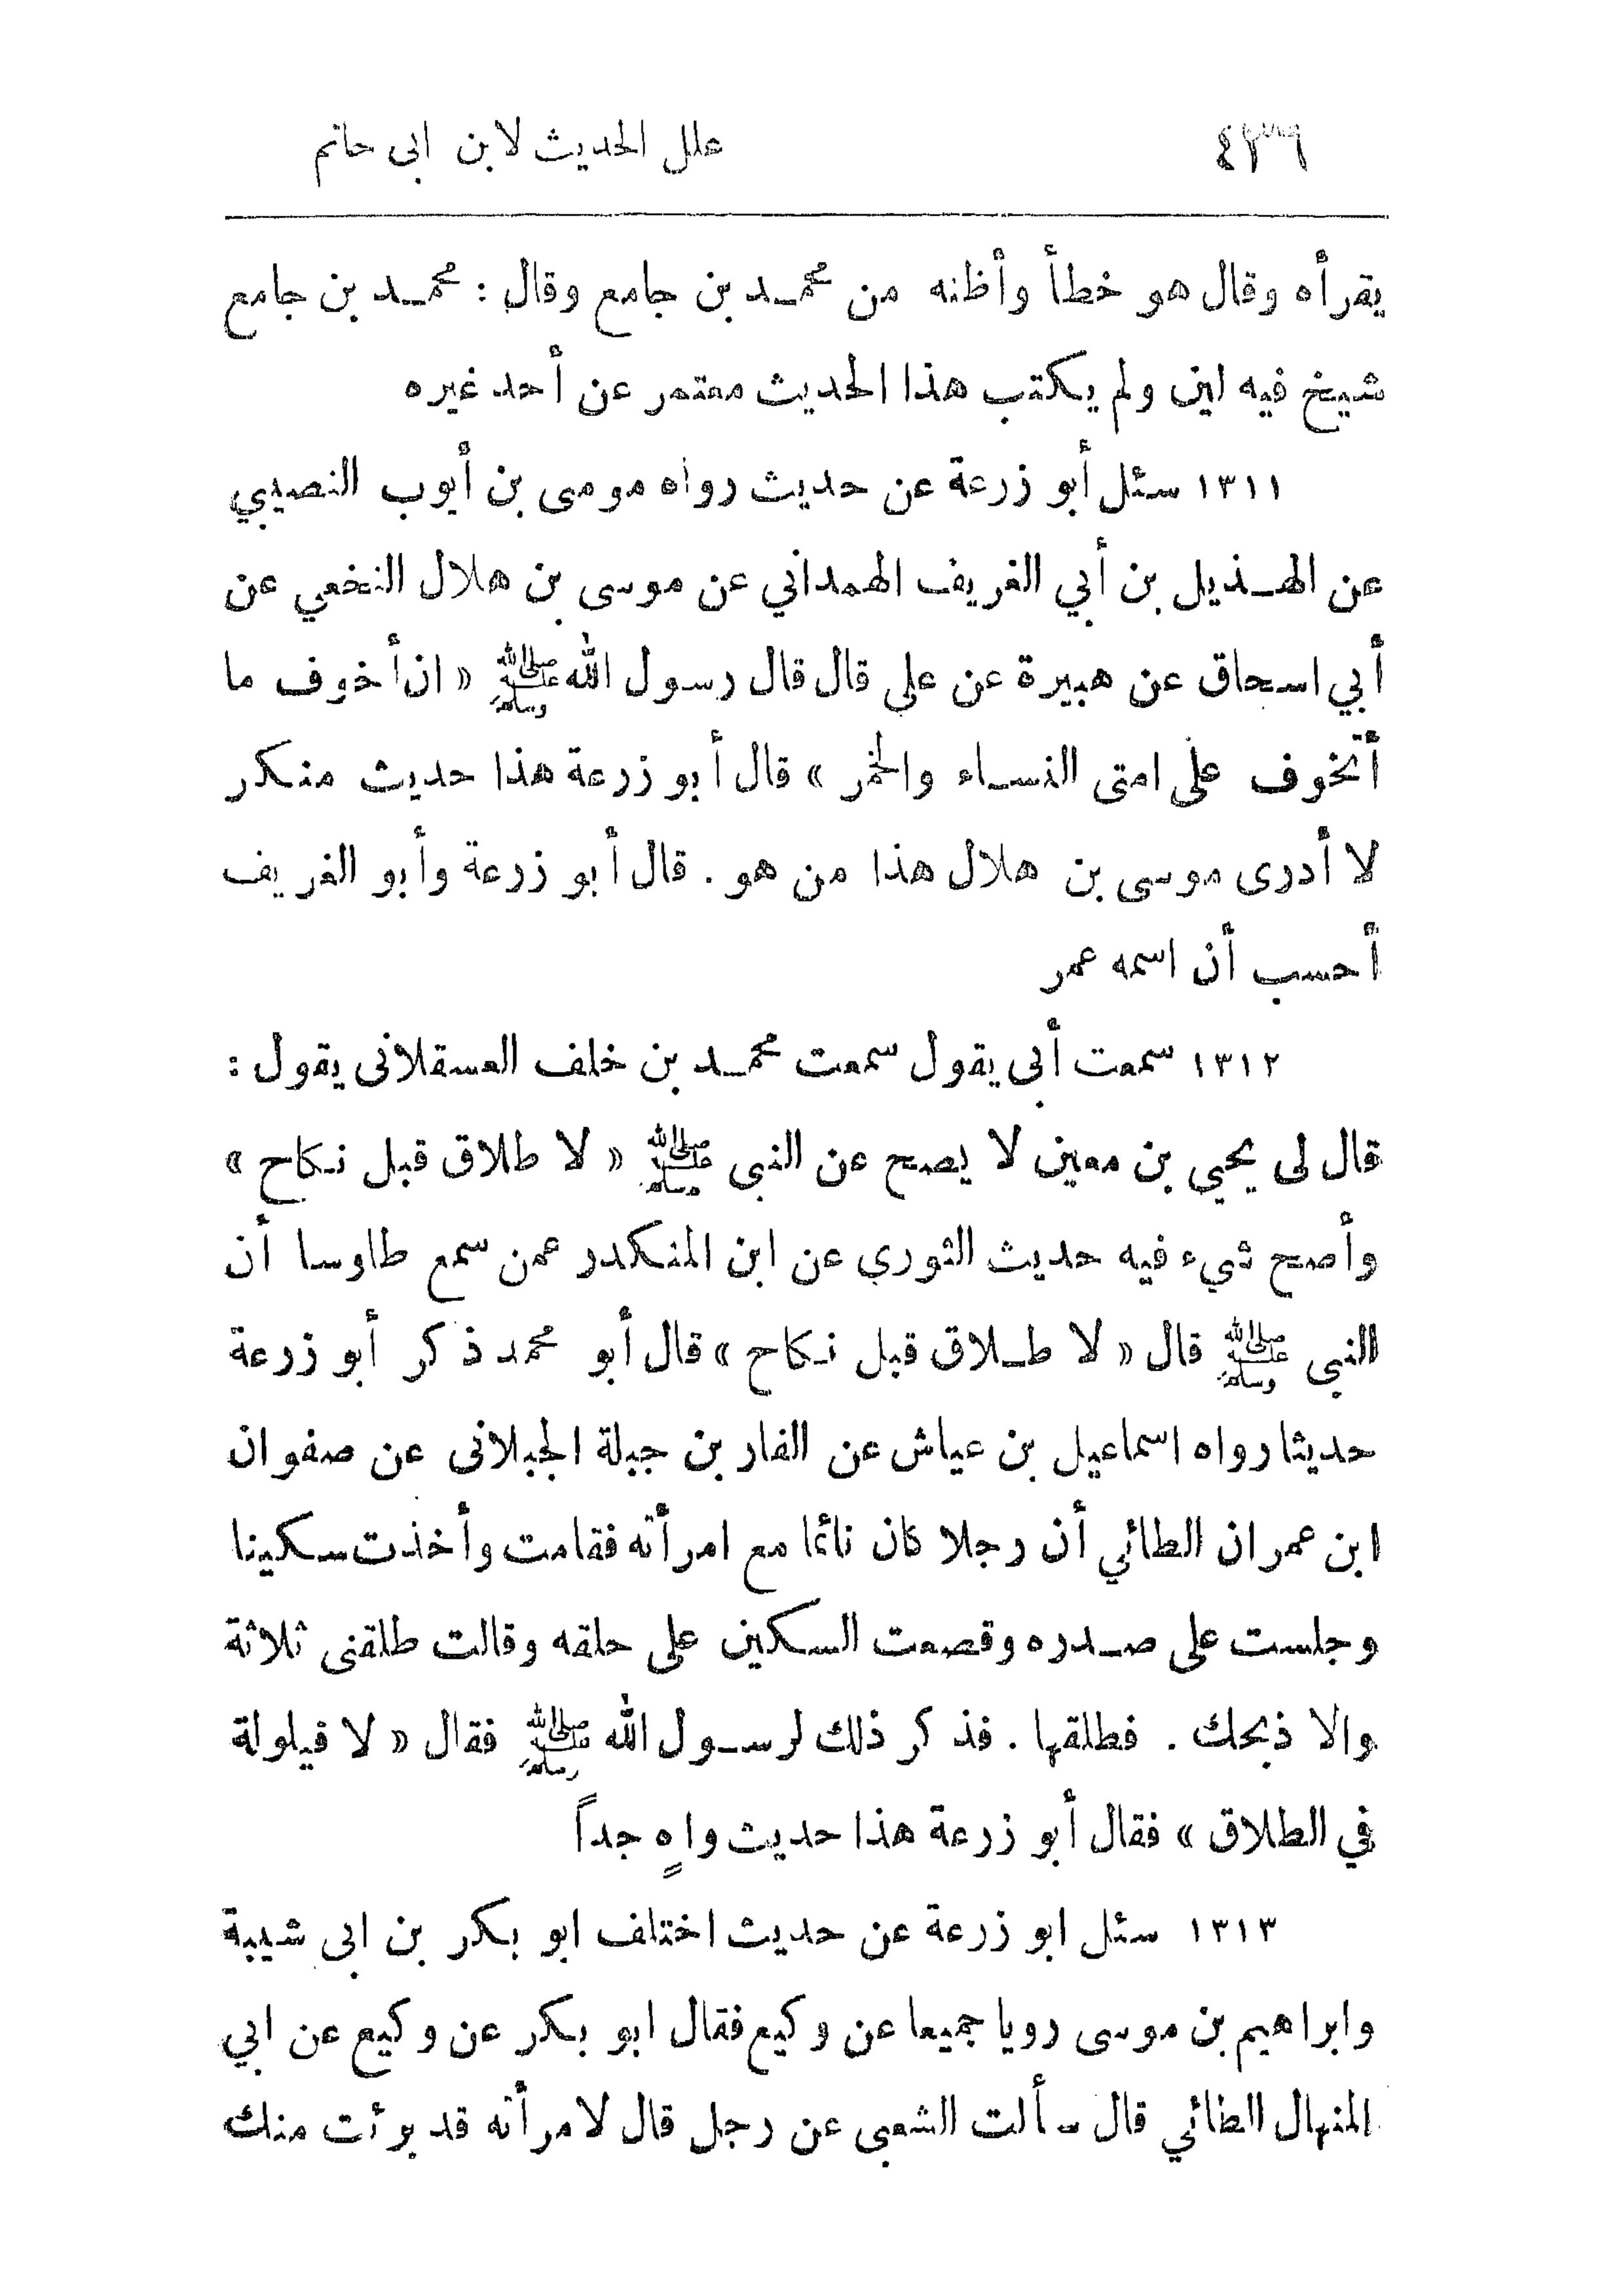 ٤٣٦ علل الحديث لابن ابى حاتم
يقرأه وقال هو خطأ وأظنه من محمد بن جامع وقال : محمد بن جامع
شيخ فيه لين ولم يكتب هذا الحديث معتمر عن أحد غيره
١٣١١ سئل أبو زرعة عن حديث رواه موسى بن أيوب النصيبي
عن الهذيل بن أبي الغريف الهمداني عن موسى بن هلال النخعي عن
أبي اسحاق عن هبيرة عن علي قال قال رسول الله ﷺ « ان أخوف ما
أتخوف على امتى النساء والخمر » قال أبو زرعة هذا حديث منكر
لا أدرى موسى بن هلال هذا من هو . قال أبو زرعة وأبو الغريف
أحسب أن اسمه عمر
١٣١٢ سمعت أبى يقول سمعت محمد بن خلف العسقلانى يقول :
قال لى يحيى بن معين لا يصح عن النبى ﷺ « لا طلاق قبل نكاح »
وأصح شيء فيه حديث الثوري عن ابن المنكدر عمن سمع طاوسا أن
النبى ﷺ قال « لا طلاق قبل نكاح » قال أبو محمد ذكر أبو زرعة
حديثا رواه اسماعيل بن عياش عن الغار بن جبلة الجبلانى عن صفوان
ابن عمران الطائي أن رجلا كان نائما مع امرأته فقامت وأخذت سكينا
وجلست على صدره وقصعت السكين على حلقه وقالت طلقنى ثلاثة
والا ذبحك . فطلقها . فذكر ذلك لرسول الله ﷺ فقال « لا قيلولة
في الطلاق » فقال أبو زرعة هذا حديث واهٍ جداً
١٣١٣ سئل ابو زرعة عن حديث اختلف ابو بكر بن ابى شيبة
وابراهيم بن موسى رويا جميعا عن وكيع فقال ابو بكر عن وكيع عن ابي
المنهال الطائي قال سألت الشعبى عن رجل قال لامرأته قد برئت منك